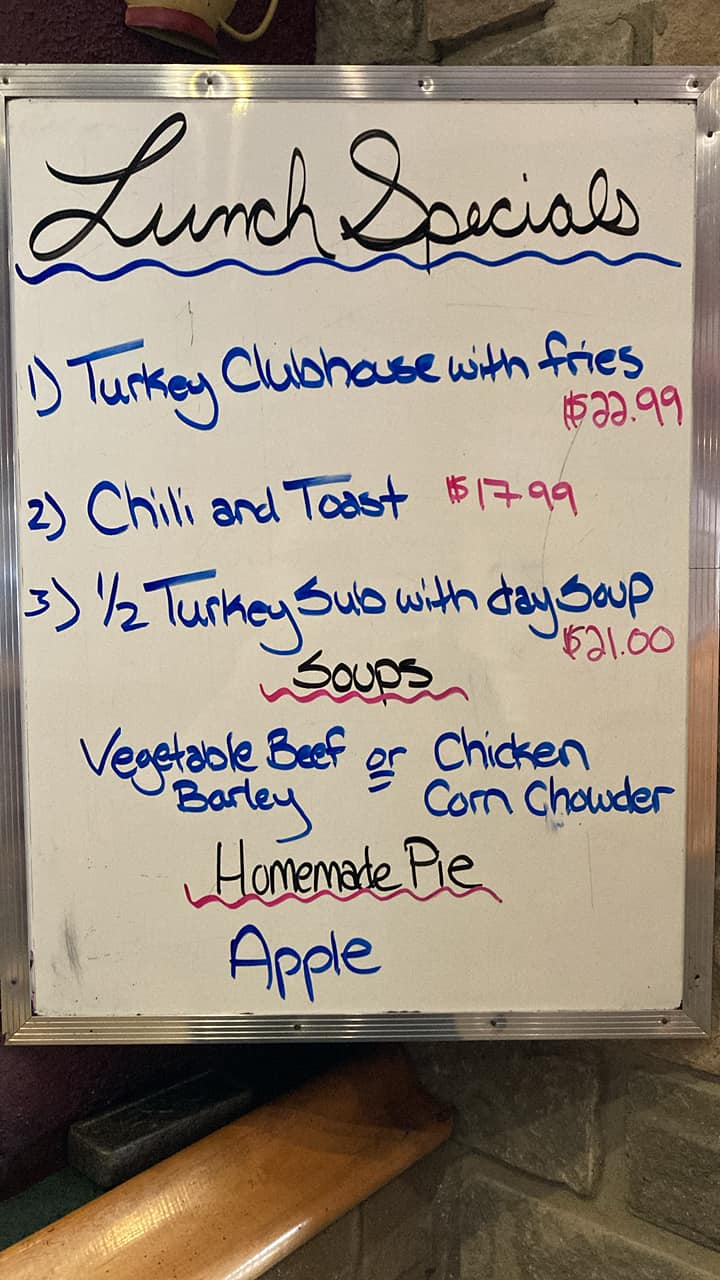 Lunch Specials
1) Turkey Clubhouse with fries
$22.99
2) Chili and Toast $17.99
3) 1/2 Turkey Sub with day Soup
$21.00
Soups
Vegetable Beef or Chicken
Barley Corn Chowder
Homemade Pie
Apple